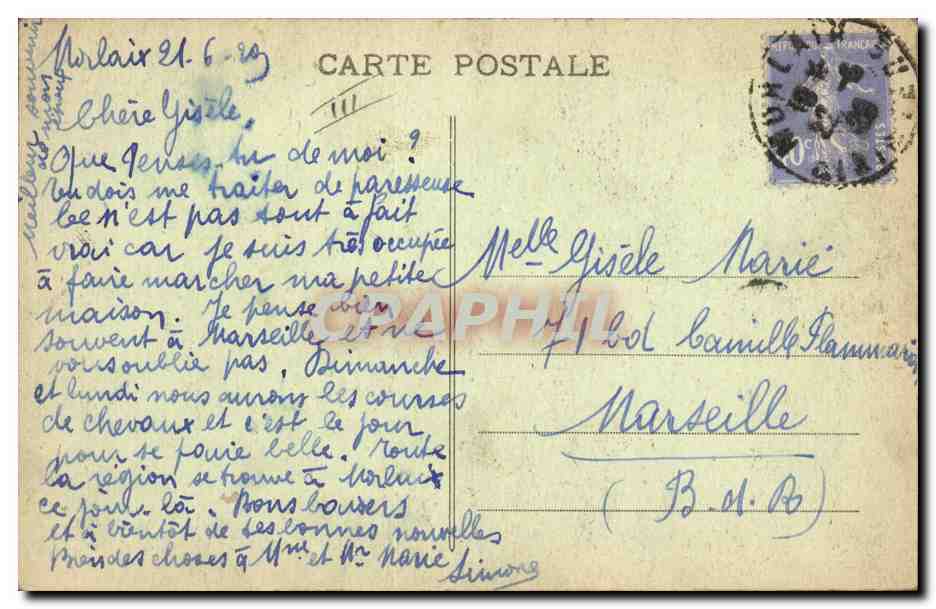 Morlaix 21-6-29
CARTE POSTALE
Chère Gisèle,
Que Penses-tu de moi ?
tu dois me traiter de paresseuse
Ce n'est pas tout à fait
vrai car je suis très occupée
à faire marcher ma petite
maison. Je pense bien
souvent à Marseille et ne
vous oublie pas. Dimanche
et lundi nous aurons les courses
de chevaux et c'est le jour
pour se faire belle. Toute
la région se trouve à Morlaix
ce jour-là. Bons baisers
et à bientôt de tes bonnes nouvelles
Bien des choses à Mme et Mr Marié
Simone
Meilleur souvenir
de mon
Melle Gisèle Marié
71 Bd Camille Flammarion
Marseille
(B. d. R)
CRAPHIL
FRANÇAISE
POSTES
40c
FINISTÈRE